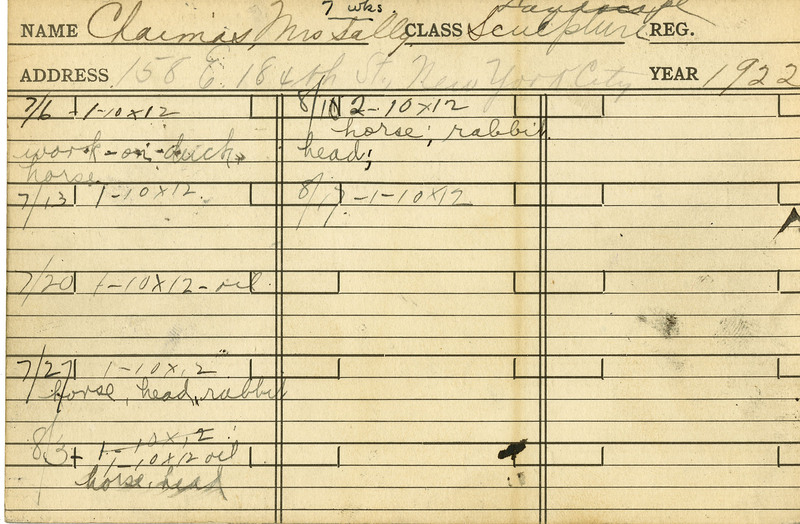 7 wks. Landscape
NAME Chaimas, Mrs Sally CLASS Sculpture REG.
ADDRESS 158 E. 184th St, New York City YEAR 1922
7/6 1-10x12
work-on-duck,
horse
7/13 1-10x12.
7/20 1-10x12-oil
7/27 1-10x12
horse, head, rabbit
8/3 1-10x12
1-10x12 oil
horse, head
8/10 2-10x12
horse; rabbit
head;
8/17-1-10x12